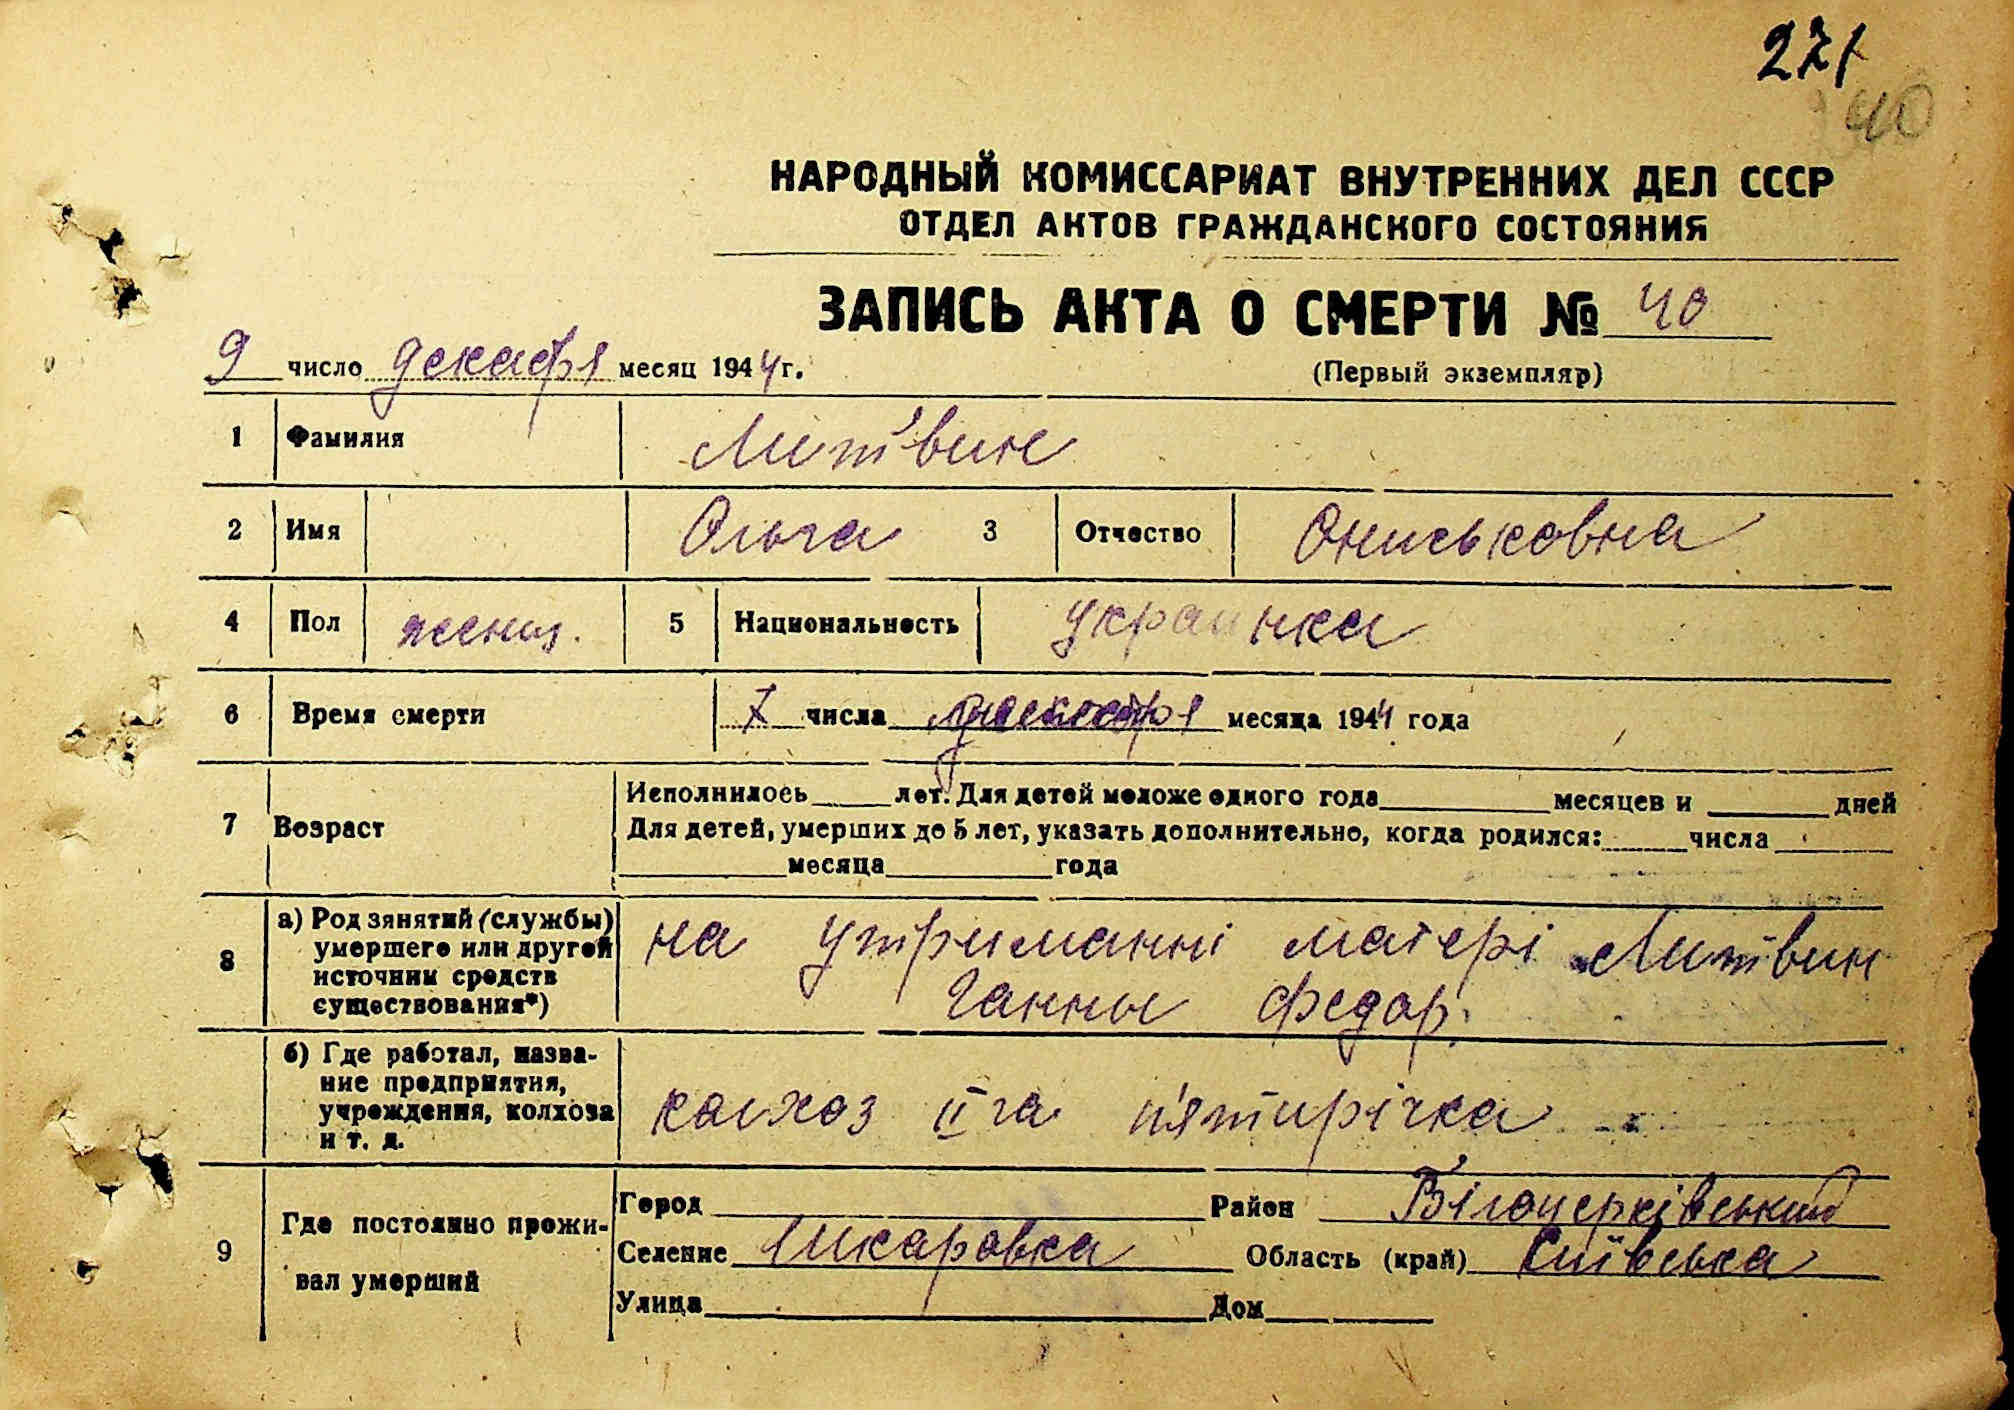 271
40
НАРОДНЫЙ КОМИССАРИАТ ВНУТРЕННИХ ДЕЛ СССР
ОТДЕЛ АКТОВ ГРАЖДАНСКОГО СОСТОЯНИЯ
ЗАПИСЬ АКТА О СМЕРТИ № 40
9 число декабря месяц 1944 г.
(Первый экземпляр)
1 Фамилия Литвин
2 Имя Ольга 3 Отчество Ониськовна
4 Пол женщ. 5 Национальность украинка
6 Время смерти 7 числа декабря месяца 1944 года
7 Возраст Исполнилось лет. Для детей моложе одного года месяцев и дней
Для детей, умерших до 5 лет, указать дополнительно, когда родился: числа
месяца года
8 а) Род занятий (службы) умершего или другой источник средств существования*) на утриманні матері Литвин
Ганны Федор.
б) Где работал, название предприятия, учреждения, колхоза и т. д. колхоз II га п'ятирічка
9 Где постоянно проживал умерший Город Район Білоцерківський
Селение Шкаровка Область (край) Київська
Улица Дом